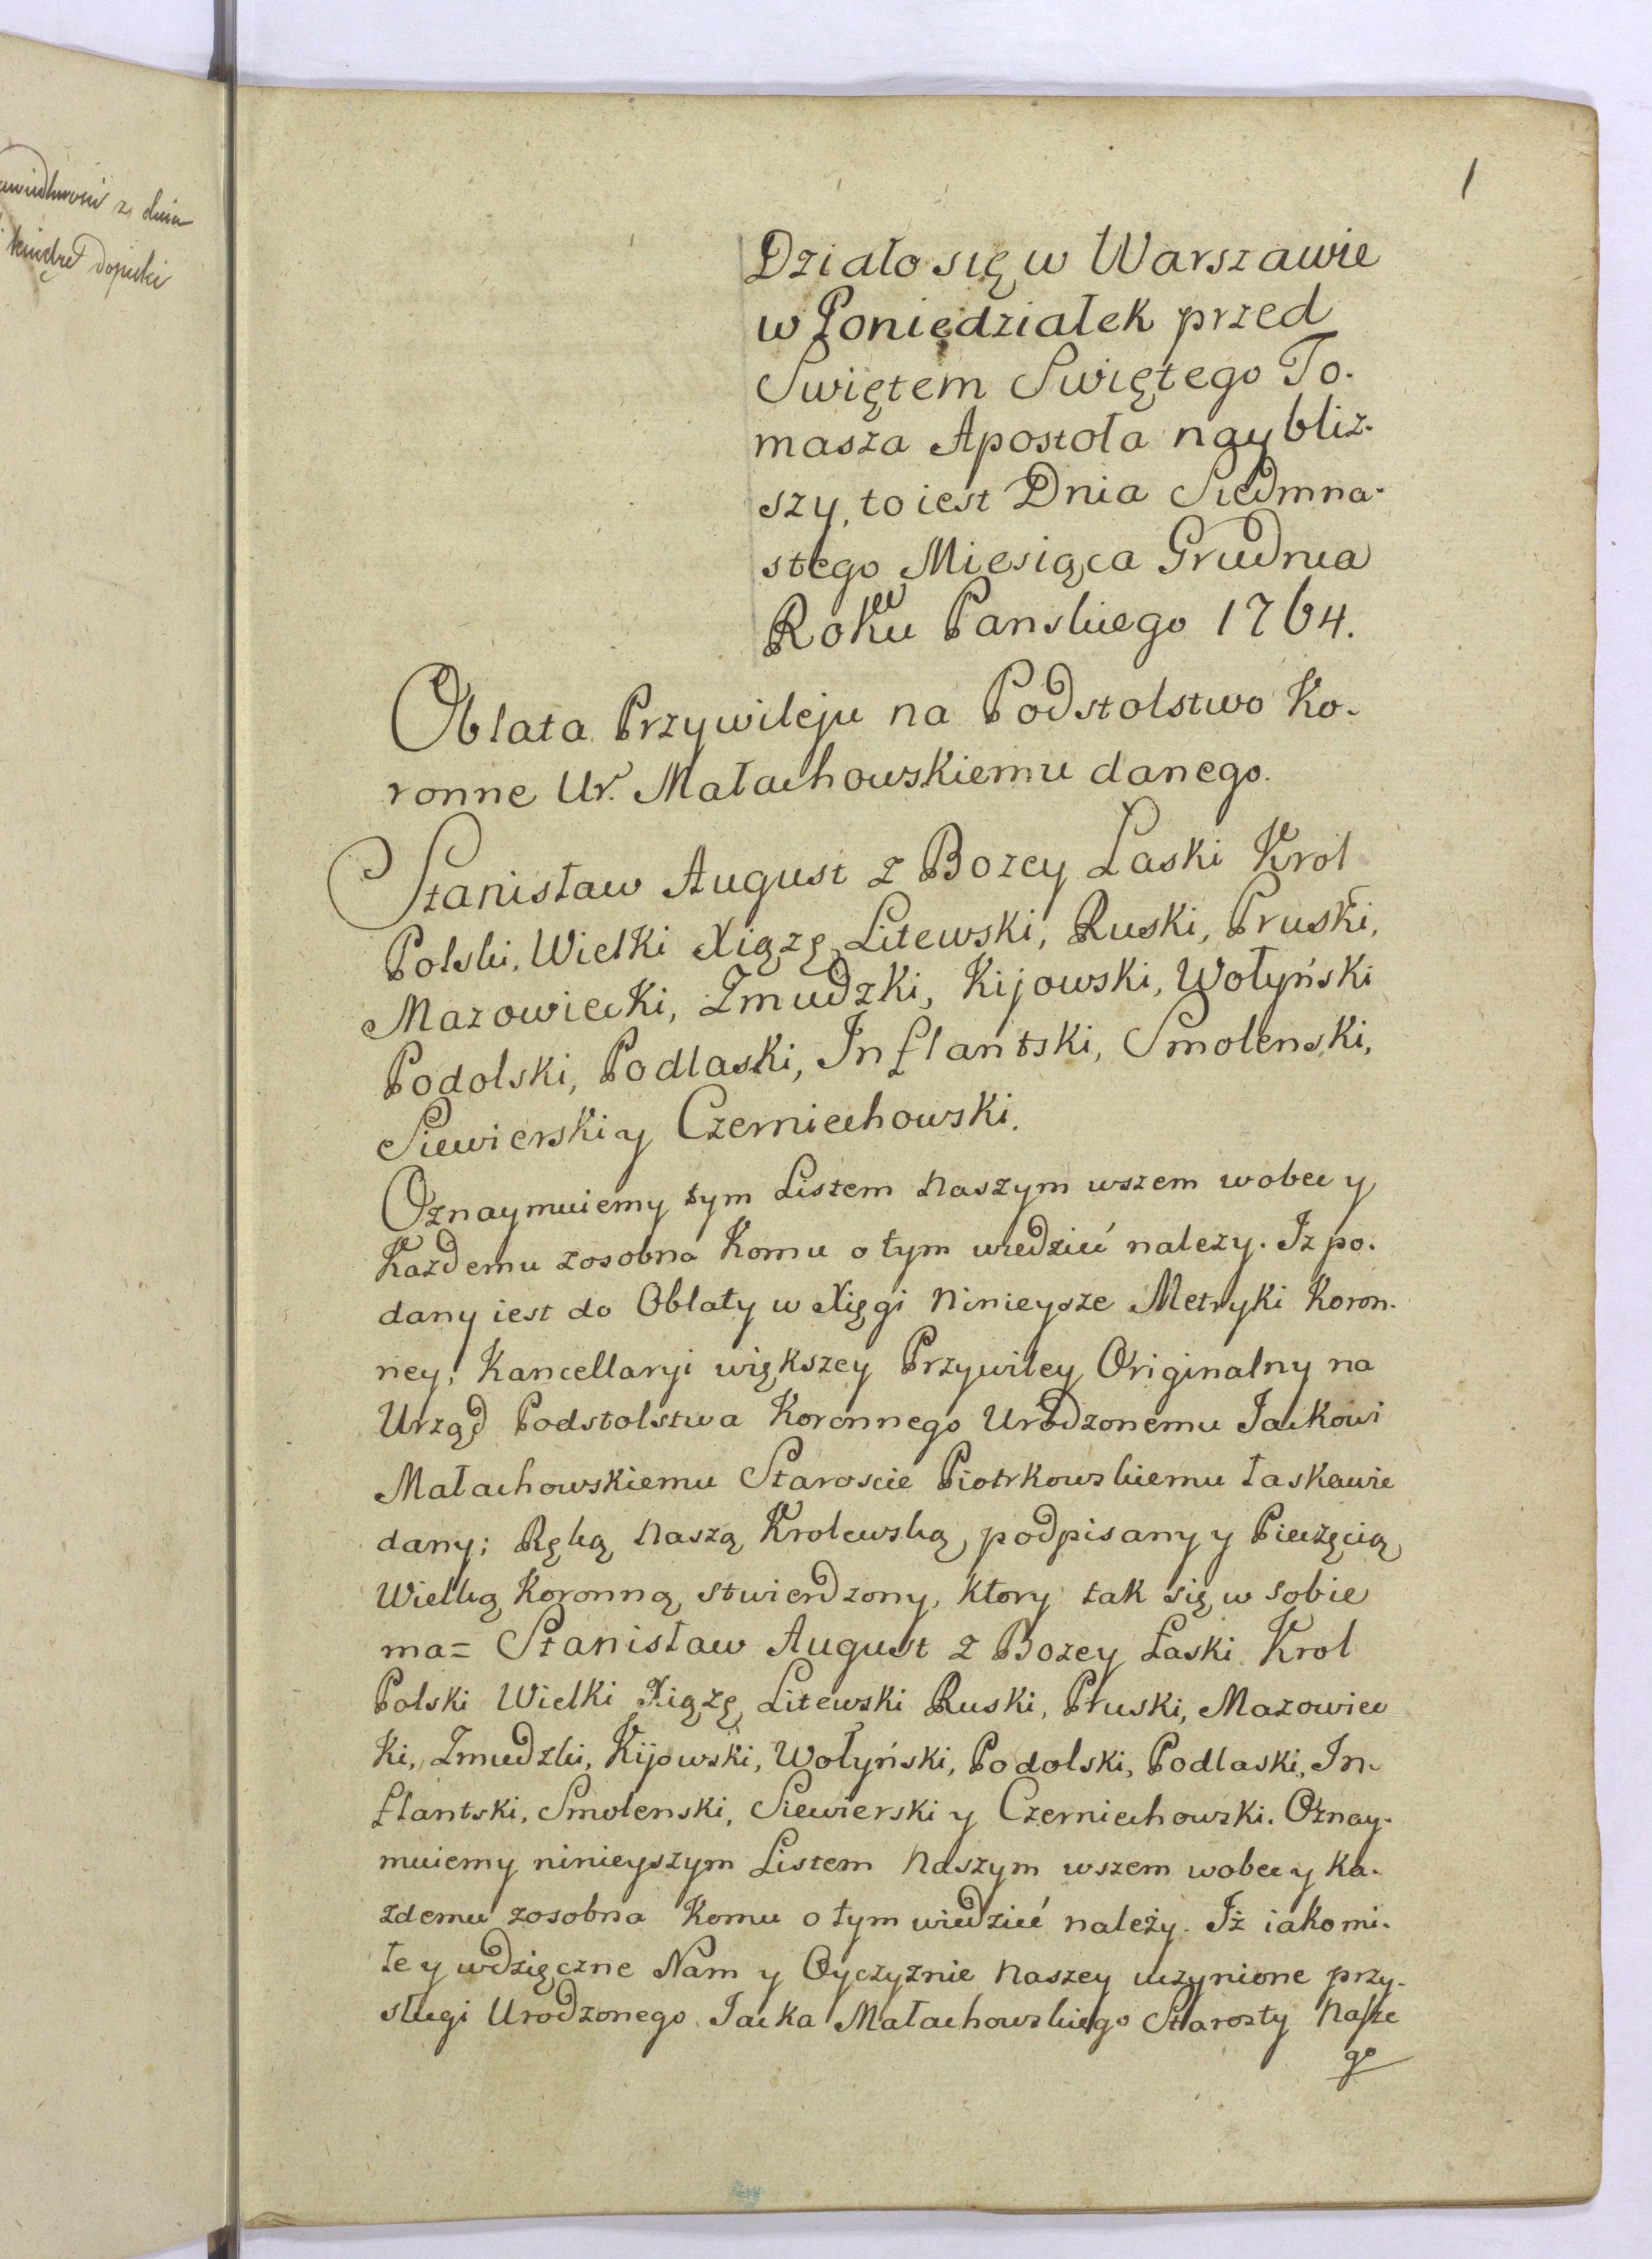 1
Działo się w Warszawie
w Poniedziałek przed
Swiętem Swiętego To-
masza Apostoła naybliz-
szy, to iest Dnia Siedmna-
stego Miesiąca Grudnia
Roku Panskiego 1764.
Oblata Przywileju na Podstolstwo Ko-
ronne Ur. Małachowskiemu danego.
Stanisław August z Bozey Łaski Krol
Polski, Wielki Xiązę Litewski, Ruski, Pruski,
Mazowiecki, Zmudzki, Kijowski, Wołyński
Podolski, Podlaski, Inflantski, Smolenski,
Siewierski y Czerniechowski.
Oznaymuiemy tym Listem Naszym wszem wobec y
Kazdemu zosobna Komu o tym wiedzieć nalezy. Iz po-
dany iest do Oblaty w Xięgi Ninieysze Metryki Koron-
ney, Kancellaryi większey Przywiley Originalny na
Urząd Podstolstwa Koronnego Urodzonemu Jackowi
Małachowskiemu Staroscie Piotrkowskiemu łaskawie
dany; Ręką Naszą Krolewską podpisany y Pieczęcią
Wielką Koronną stwierdzony, ktory tak się w sobie
ma= Stanisław August z Bozey Łaski Krol
Polski Wielki Xiążę Litewski Ruski, Pruski, Mazowiec
ki, Zmudzki, Kijowski, Wołyński, Podolski, Podlaski, In-
flantski, Smolenski, Siewierski y Czerniechowski. Oznay-
muiemy ninieyszym Listem Naszym wszem wobec y Ka-
zdemu zosobna Komu o tym wiedzieć należy. Iż iako mi-
łe y wdzięczne Nam y Oyczyznie Naszey uczynione przy-
sługi Urodzonego Jacka Małachowskiego Starosty Nasze
go
z dnia